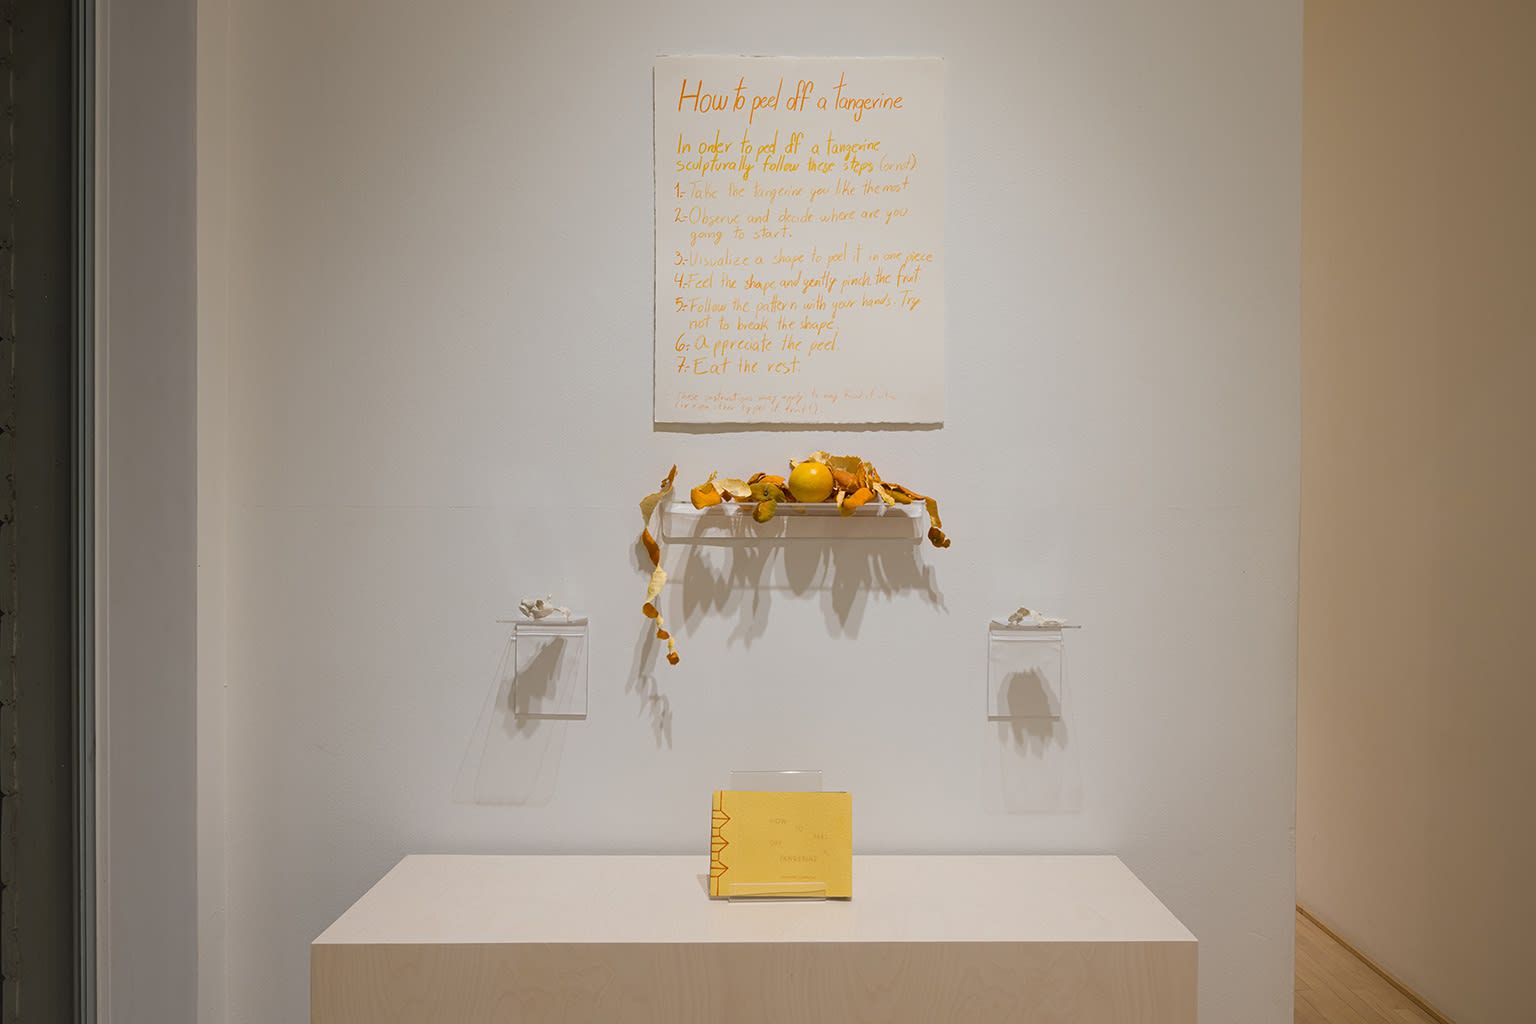 How to peel off a tangerine
In order to peel off a tangerine
sculpturally follow these steps (or not).
1.- Take the tangerine you like the most
2.- Observe and decide where are you
going to start.
3.- Visualize a shape to peel it in one piece
4.- Feel the shape and gently pinch the fruit
5.- Follow the pattern with your hands. Try
not to break the shape.
6.- Appreciate the peel.
7.- Eat the rest.
These instructions may apply to any kind of
(or even other types of fruit).
HOW
TO
PEEL
OFF
A
TANGERINE